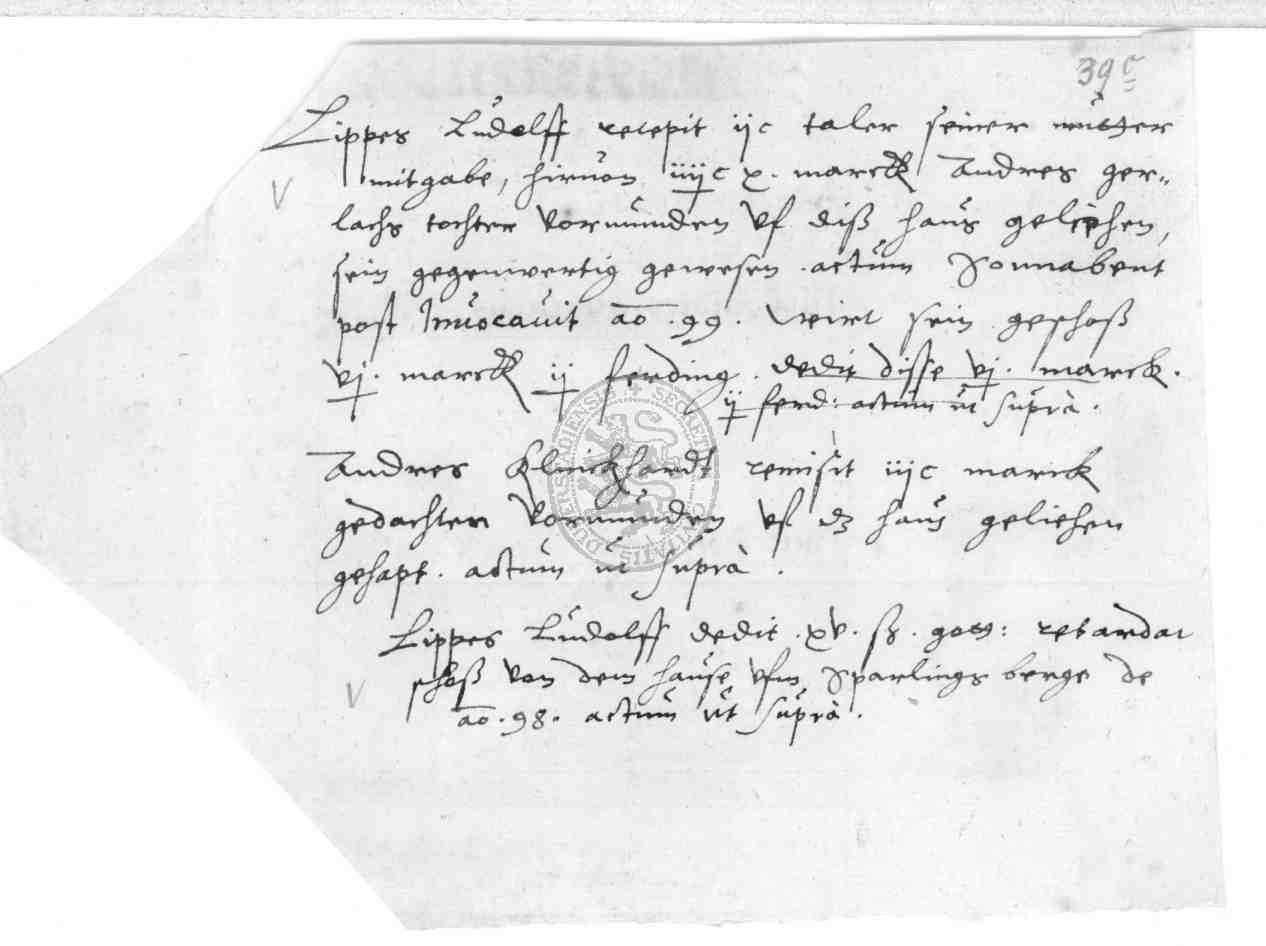 39c
Lippes Ludolff recepit ijc taler seiner mutter
mitgabe, hirvon iiijc x. marck Andres ger-
lachs tochter vormunden uf diß haus geliehen,
sein gegenwertig gewesen. actum Sonnabent
post Invocavit ao .99. wirt sein geschoß
vj. marck ij ferding. dedit disse vj. marck.
ij ferd: actum ut supra.
Andres Klinckhardt remisit iijc marck
gedachten vormunden uf dz haus geliehen
gehapt. actum ut supra.
Lippes Ludolff dedit .xv. ß. gott: retardat
schoß von dem hause ufm Sparlings berge de
ao .98. actum ut supra.